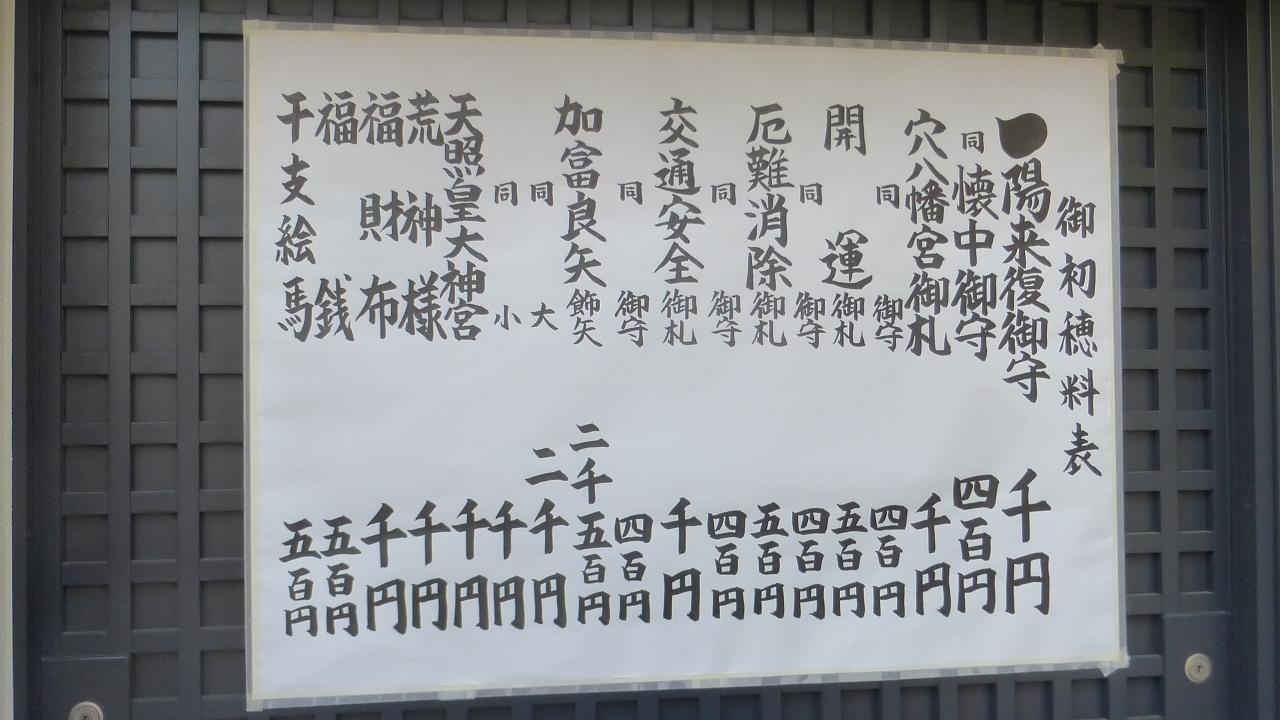 御初穂料表
陽来復御守 千円
同 懐中御守 四百円
穴八幡宮御札 千円
同 御守 四百円
開運 御札 五百円
同 御守 四百円
厄難消除 御札 五百円
同 御守 四百円
交通安全 御札 千円
同 御守 四百円
加富良矢 飾矢 二千五百円
同 大 二千円
同 小 千円
天照皇大神宮 千円
荒神様 千円
福財布 千円
福銭 五百円
干支絵馬 五百円